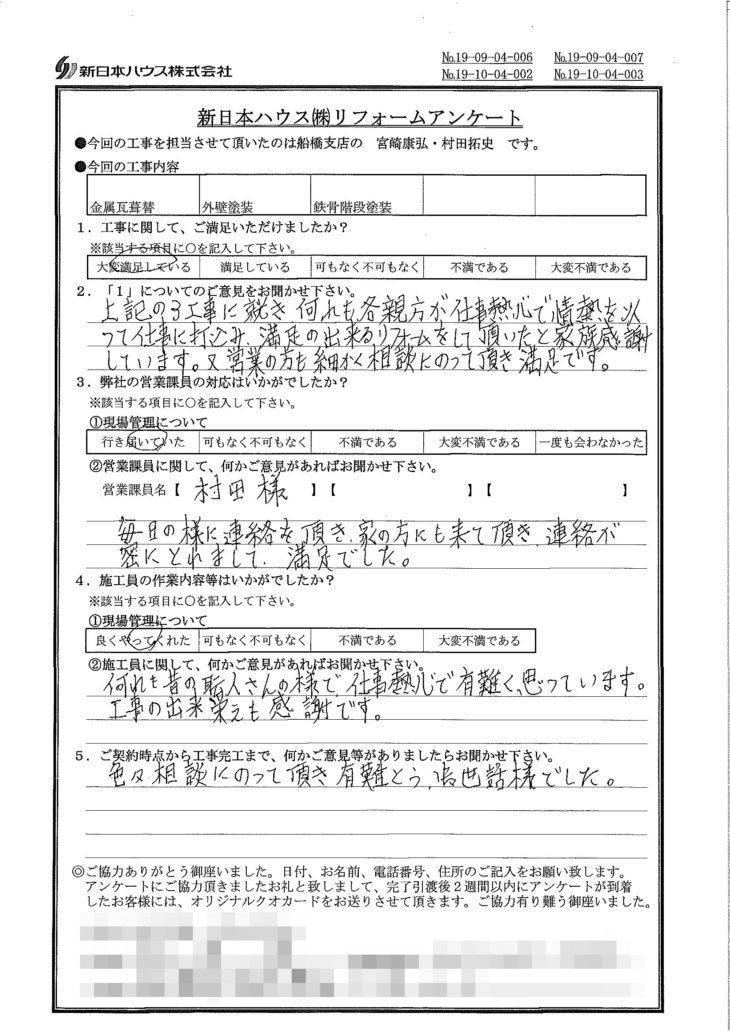 新日本ハウス株式会社
№19-09-04-006 №19-09-04-007
№19-10-04-002 №19-10-04-003
新日本ハウス㈱リフォームアンケート
●今回の工事を担当させて頂いたのは船橋支店の 宮崎康弘・村田拓史 です。
●今回の工事内容
金属瓦葺替 外壁塗装 鉄骨階段塗装
1．工事に関して、ご満足いただけましたか？
※該当する項目に○を記入して下さい。
大変満足している 満足している 可もなく不可もなく 不満である 大変不満である
2．「1」についてのご意見をお聞かせ下さい。
上記の3工事に就き 何れも各親方が仕事熱心で情熱を以
って仕事に打込み、満足の出来るリフォームをして頂いたと家族感謝
しています。又営業の方も細かく相談にのって頂き満足です。
3．弊社の営業課員の対応はいかがでしたか？
※該当する項目に○を記入して下さい。
①現場管理について
行き届いていた 可もなく不可もなく 不満である 大変不満である 一度も会わなかった
②営業課員に関して、何かご意見があればお聞かせ下さい。
営業課員名【 村田様 】【 】【 】
毎日の様に連絡を頂き、家の方にも来て頂き、連絡が
密にとれまして、満足でした。
4．施工員の作業内容等はいかがでしたか？
※該当する項目に○を記入して下さい。
①現場管理について
良くやってくれた 可もなく不可もなく 不満である 大変不満である
②施工員に関して、何かご意見があればお聞かせ下さい。
何れも昔の職人さんの様で、仕事熱心で有難く、思っています。
工事の出来栄えも感謝です。
5．ご契約時点から工事完工まで、何かご意見等がありましたらお聞かせ下さい。
色々相談にのって頂き有難とう、お世話様でした。
◎ご協力ありがとう御座いました。日付、お名前、電話番号、住所のご記入をお願い致します。
アンケートにご協力頂きましたお礼と致しまして、完了引渡後2週間以内にアンケートが到着
したお客様には、オリジナルクオカードをお送りさせて頂きます。ご協力有り難う御座いました。